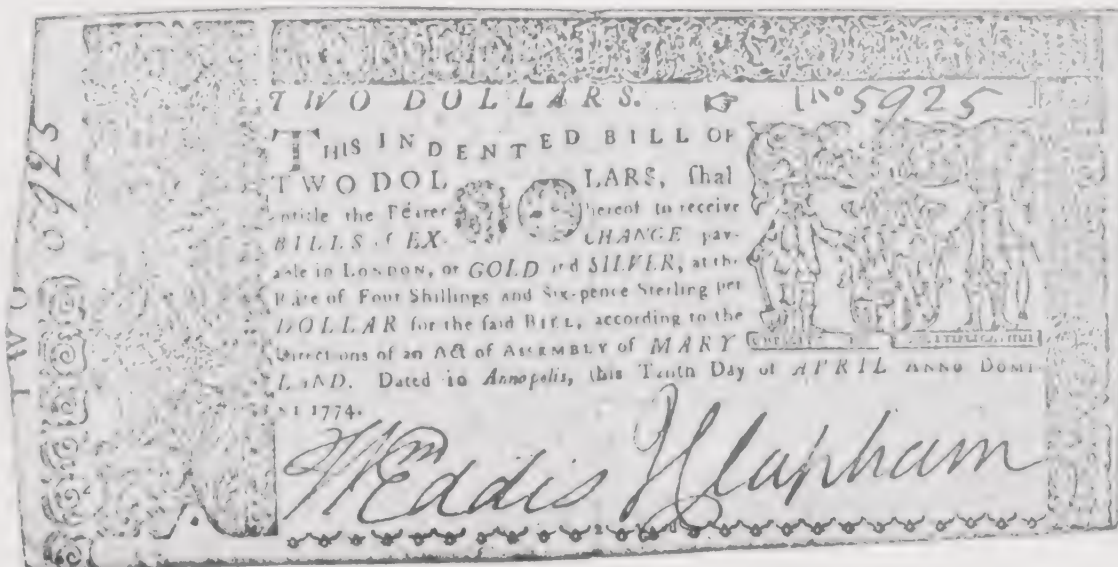 TWO DOLLARS. ☞ [No 5925
THIS INDENTED BILL OF
TWO DOL LARS, ſhal
entitle the Bearer hereof to receive
BILLS of EX- CHANGE pay-
able in LONDON, or GOLD and SILVER, at the
Rate of Four Shillings and Six-pence Sterling per
DOLLAR for the ſaid BILL, according to the
Directions of an Act of ASSEMBLY of MARY
LAND. Dated in Annapolis, this Tenth Day of APRIL ANNO DOMI-
NI 1774.
Wm Eddis J Clapham
TWO 5925